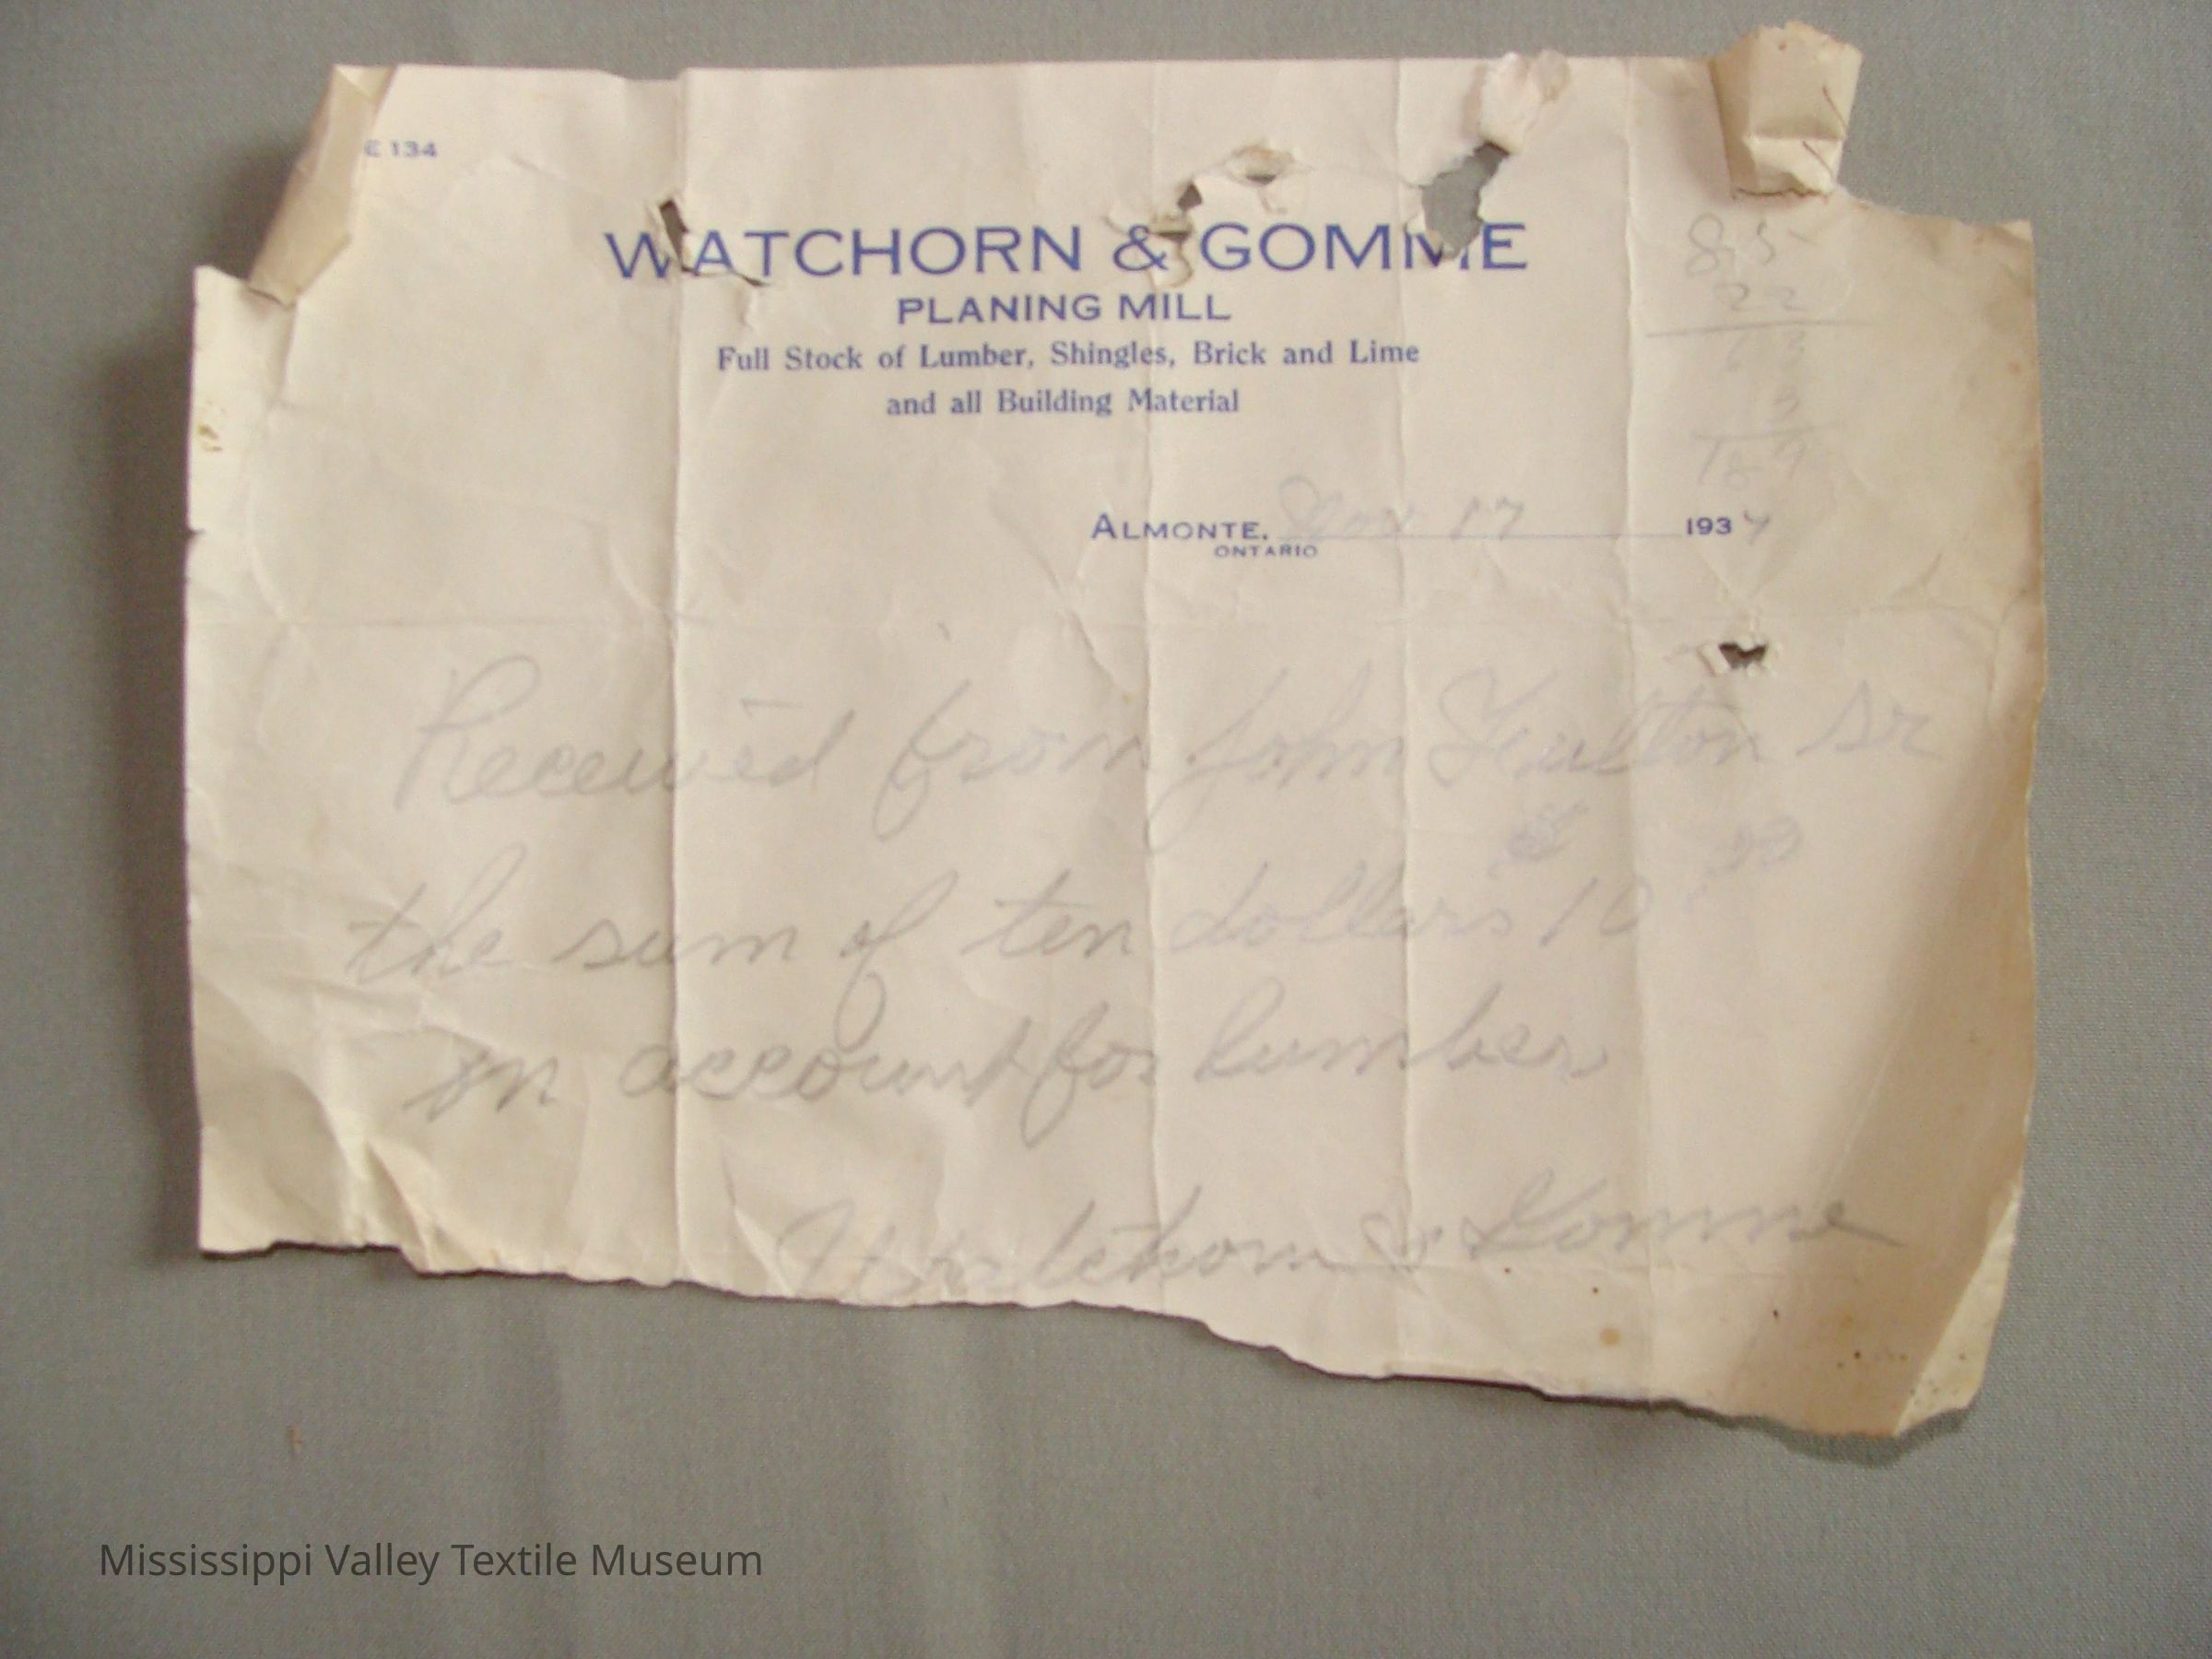 E 134
WATCHORN & GOMME
PLANING MILL
Full Stock of Lumber, Shingles, Brick and Lime
and all Building Material
85
22
63
3
189
ALMONTE, Nov 17 1934
ONTARIO
Received from John Fulton sr
the sum of ten dollars $10.00
on account for lumber
Watchorn & Gomme
Mississippi Valley Textile Museum